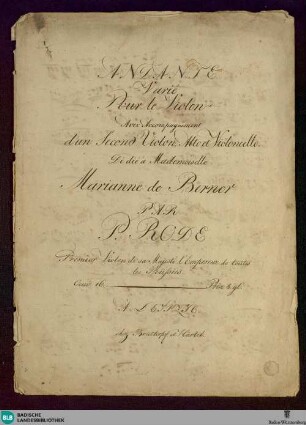 ANDANTE
Varié
Pour le Violon
Avec Accompagnement
d'un Second Violon, Alto et Violoncelle
Dédié a Mademoiselle
Marianne de Berner
PAR
P. RODE
Premier Violon de sa Majesté l'Empereur de toutes
les Russies.
Oeuv. 16. Prix 8 gl.
A LEIPZIG
chez Breitkopf et Härtel
BLB
BADISCHE
LANDESBIBLIOTHEK
Baden-Württemberg